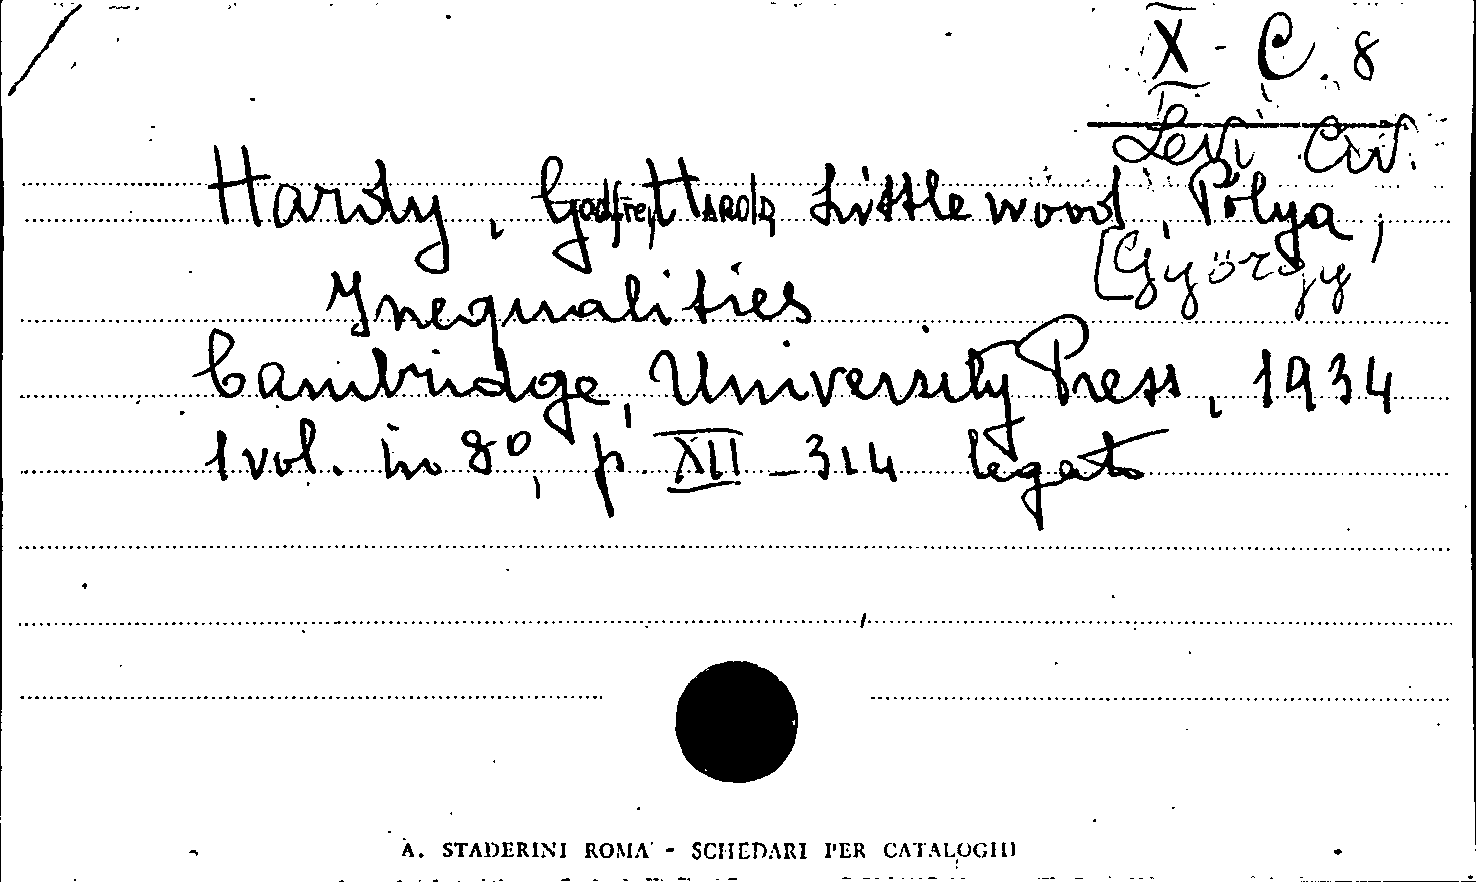 X - C. 8
Levi Civ.
Hardy, Godfrey Harold, Littlewood, Pólya,
[György
Inequalities
Cambridge, University Press, 1934
1 vol. in 8°, p. XII - 314 legato
A. STADERINI ROMA - SCHEDARI PER CATALOGHI